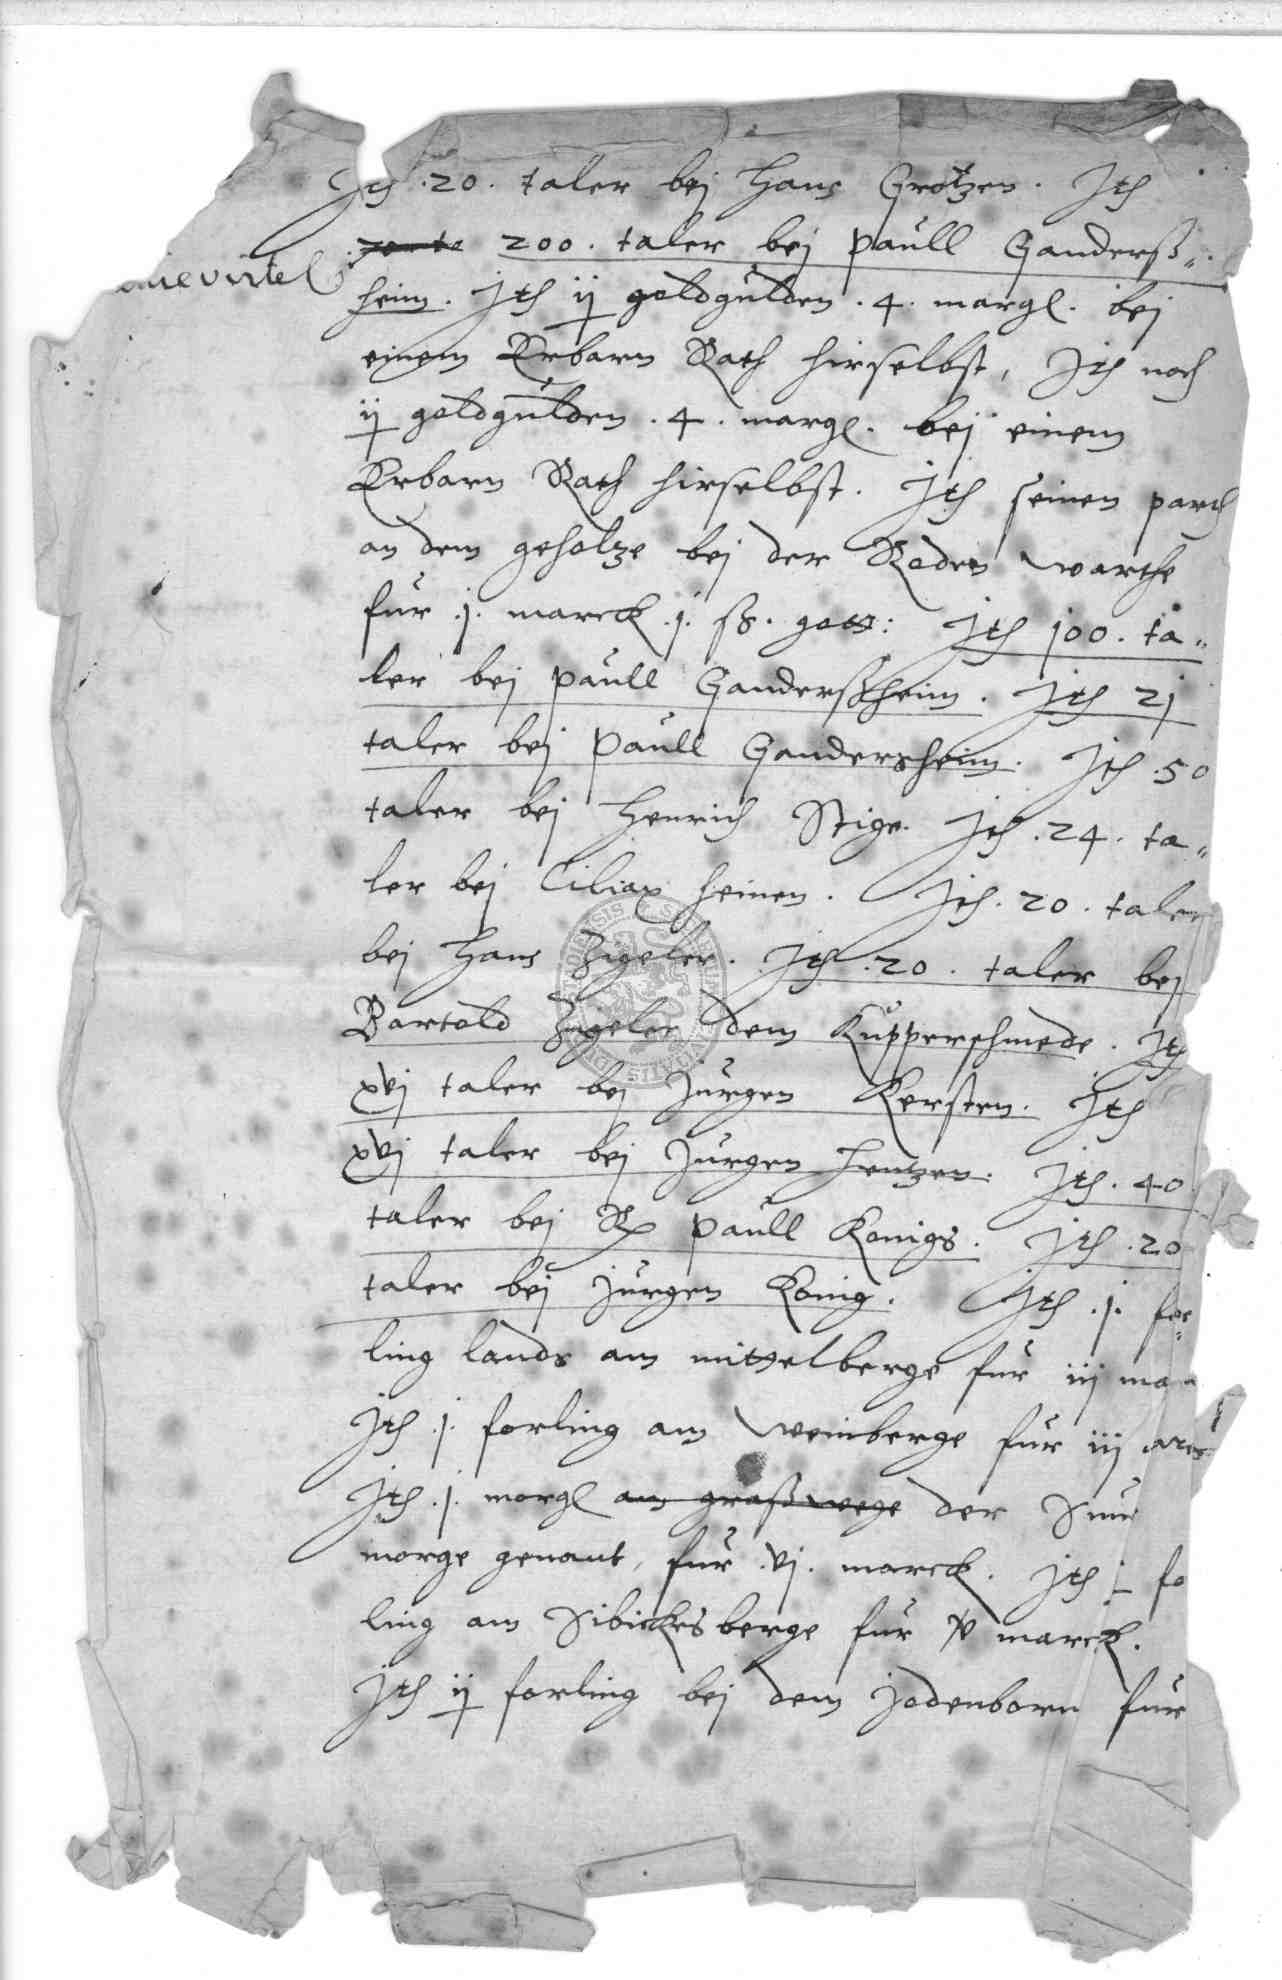 Jtem .20. taler bej Hans Grotzen. Jtem
200. taler bej paull Ganderß„
heim. Jtem ij goldgulden .4. margl. bej
einem Erbarn Rath hirselbst, Jtem noch
ij goldgulden .4. margl. bej einem
Erbarn Rath hirselbst. Jtem seinen parth
an dem geholtze bej der Roden warthe
fur .j. marck .j. ß. gott: Jtem 100. ta„
ler bej paull Ganderßheim. Jtem 21
taler bej paull Gandersheim. Jtem .50
taler bej Henrich Stige. Jtem .24. ta„
ler bej Ciliax Heinen. Jtem .20. taler
bej Hans Zigeler. Jtem .20. taler bej
Bartold Zigeler dem Kupperschmede. Jtem
xvj taler bej Jurgen Kersten. Jtem
xvj taler bej Jurgen Hentzen: Jtem .40
taler bej paull Konigs. Jtem .20
taler bej Jurgen Konig. Jtem .j. for„
ling lands am mittelberge fur iij mar
Jtem .j. forling am weinberge fur iij
Jtem .j. morgl am graßwege der
morge genant, fur .vj. marck. Jtem j fo
ling am Sibickes berge fur v marck.
Jtem ij forling bej dem Jodenborn fur